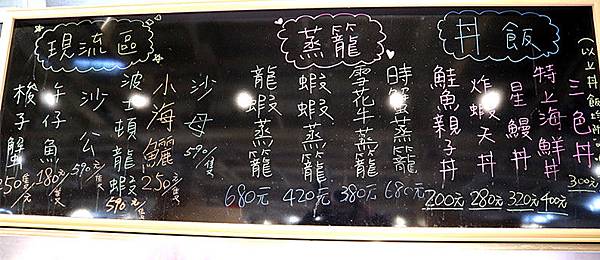 丼飯
三色丼 300元
特上海鮮丼 400元
星鰻丼 320元
炸蝦天丼 280元
鮭魚親子丼 200元
蒸籠
時蟹蒸籠 680元
雪花牛蒸籠 380元
蝦蝦蒸籠 420元
龍蝦蒸籠 680元
現流區
沙母 590元/隻
小海鱺 250元/隻
波士頓龍蝦 590元/隻
沙公 590元/隻
午仔魚 180元/隻
梭子蟹 250元/隻